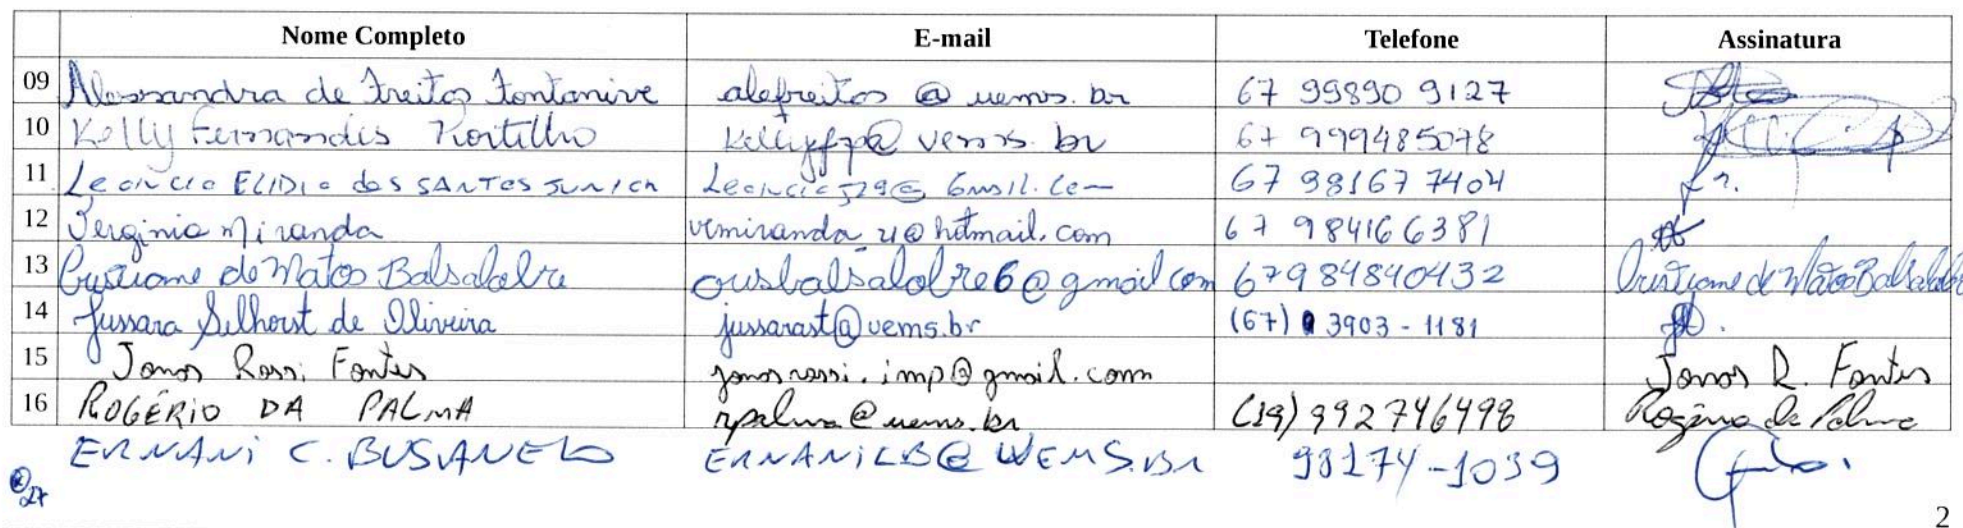 Nome Completo E-mail Telefone Assinatura
09 Alessandra de Freitas Fontanive alefreitas@uems.br 67 99890 9127
10 Kelly Fernandes Portilho kellyfp@uems.br 67 999485078
11 Leoncio ELIDIO dos SANTOS JUNIOR 67 981677404
12 Verginia Miranda vmiranda_21@hotmail.com 67 984166381
13 Cristiane de Matos Balsalobre crisbalsalobre6@gmail.com 67984840432 Cristiane de Matos Balsalobre
14 Jussara Selhorst de Oliveira jussarast@uems.br (67) 3903-1181
15 Jonas Rossi Fontes jonasrossi.imp@gmail.com Jonas R. Fontes
16 ROGÉRIO DA PALMA rpalma@uems.br (19) 992746498 Rogério da Palma
ERNANI C. BUSANELO ERNANICB@UEMS.BR 98174-1039
2